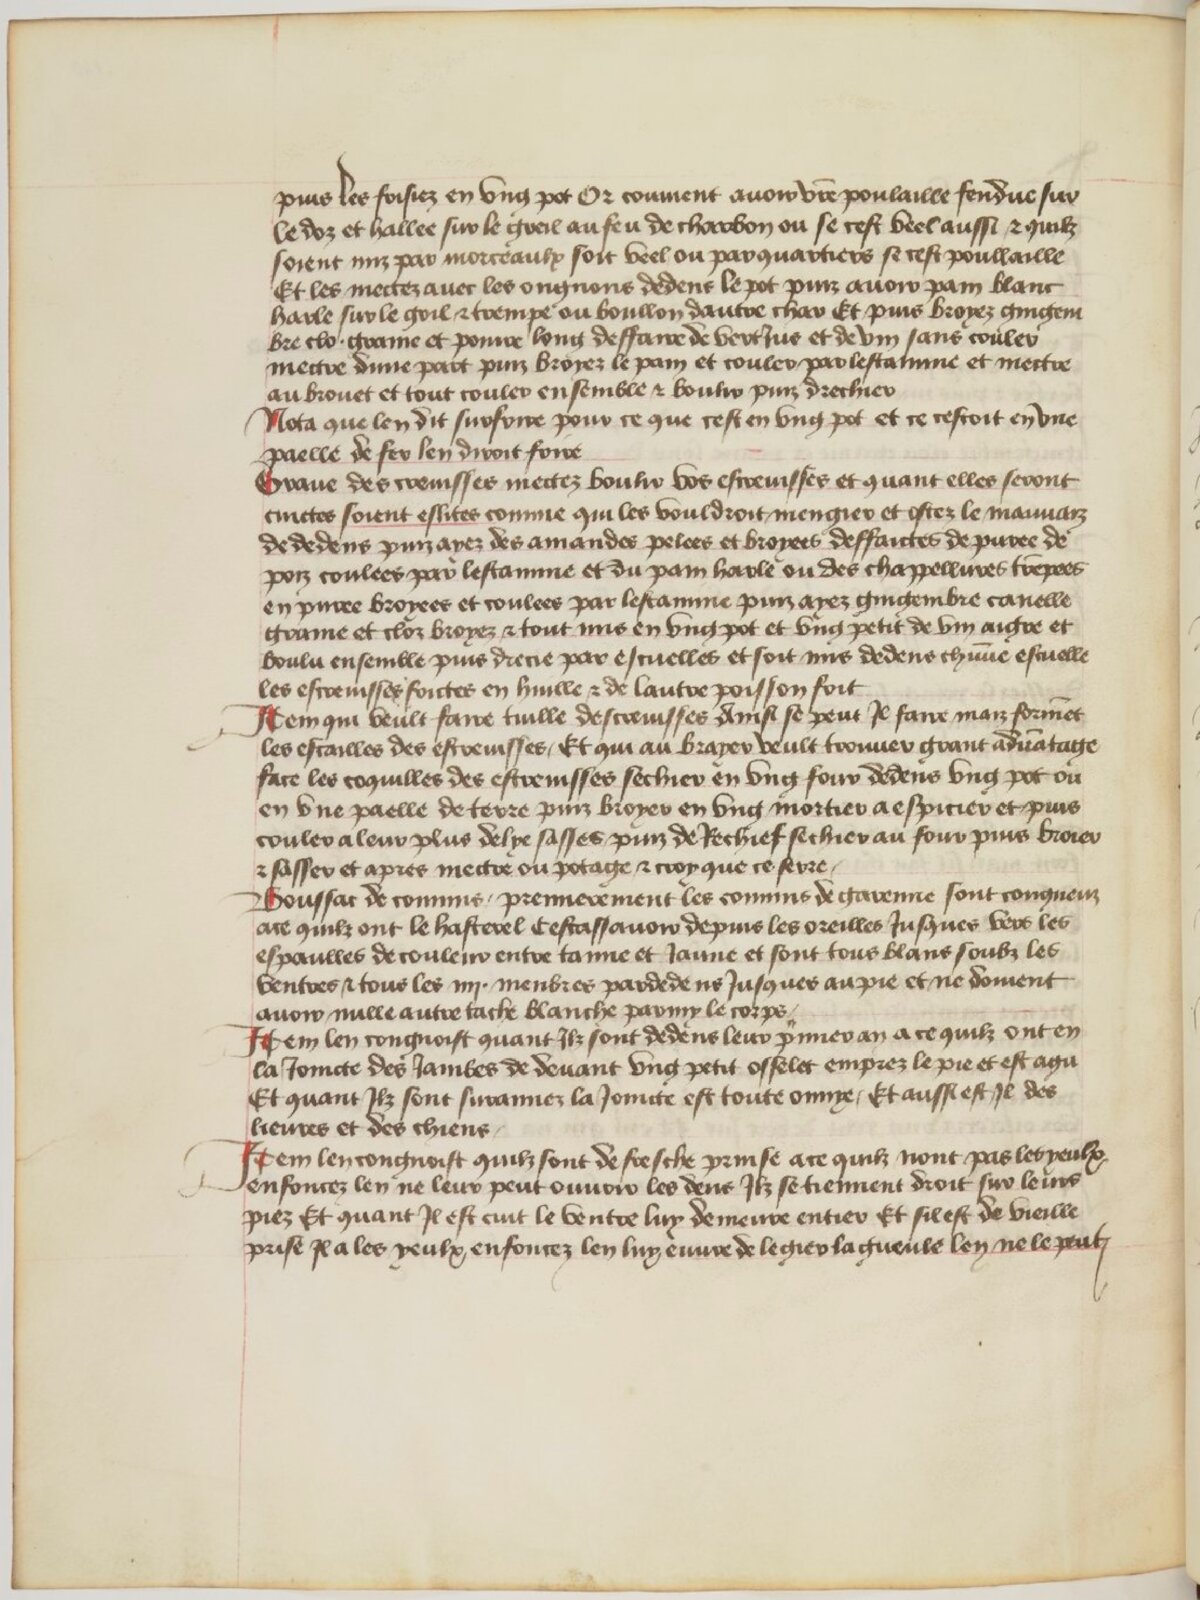 puis les frisiez en ung pot Or couuient auoir vr̄e poulaille fendue sur
le doz et hallee sur le greil au feu de charbon ou se cest veel aussi ⁊ quilz
soient miz par morceaulx soit veel ou par quartiers se cest poullaille
Et les mectez auec les ongnons dedens le pot puiz auoir pain blanc
harle sur le gril ⁊ trempe ou boullon dautre char Et puis broyez gingem
bre clo · graine et poiure long deffaire de vertjus et de vin sans couler
mectre dune part puiz broyez le pain et couler par lestamine et mectre
au brouet et tout couler ensemble ⁊ boulir puiz drechier
Nota que len dit surfrire pour ce que cest en ung pot et ce cestoit en vne
paelle de fer len diroit frire
Graue descreuisses mectez boulir vos escreuisses et quant elles seront
cuictes soient eslites comme qui les vouldroit mengier et ostez le mauuaiz
de dedens puiz ayez des amandes pelees et broyees deffaictes de puree de
poiz coulees par lestamine et du pain harle ou des chappellures trēpees
en puree broyees et coulees par lestamine puiz ayez gingembre canelle
graine et cloz broyez ⁊ tout mis en ung pot et ung petit de vin aigre et
boulu ensemble puis drecie par escuelles et soit mis dedens chūne escuelle
les escreuisses frictes en huille ⁊ de lautre poisson frit
Item qui veult faire tuille descreuisses Ainsi se peut Il faire maiz formēt
les escailles des escreuisses / Et qui au brayer veult trouuer grant aduātage
face les coquilles des escreuisses sechier en ung four dedens ung pot ou
en vne paelle de terre puiz broyer en ung mortier a espicier et puis
couler a leur plus delye sasses puiz de Rechief sechier au four puis broier
⁊ sasser et apres mectre ou potage ⁊ croy que ce serre /
Boussac de connins / premierement les connins de garenne sont congneuz
ace quilz ont le hasterel Cestassauoir depuis les oreilles Jusques vers les
espaulles de couleur entre tanne et Jaune et sont tous blans soubz les
ventres ⁊ tous les iiij · menbres par dedens Jusques au pie et ne doiuent
auoir nulle autre tache blanche parmy le corps /
Item len congnoist quant Ilz sont dedens leur p̄mier an a ce quilz ont en
la Joincte des Jambes de deuant ung petit osselet emprez le pie et est agu
Et quant Ilz sont surannez la Joincte est toute onnye / Et aussi est Il des
lieures et des chiens /
Item len congnoist quilz sont de fresche prinse ace quilz nont pas les yeulx
enfoncez len ne leur peut ouurir les dens Ilz se tiennent droit sur leurs
piez Et quant Il est cuit le ventre luy demeure entier Et sil est de vieille
prise Il a les yeulx enfoncez len luy euure de legier la gueule len ne le peut